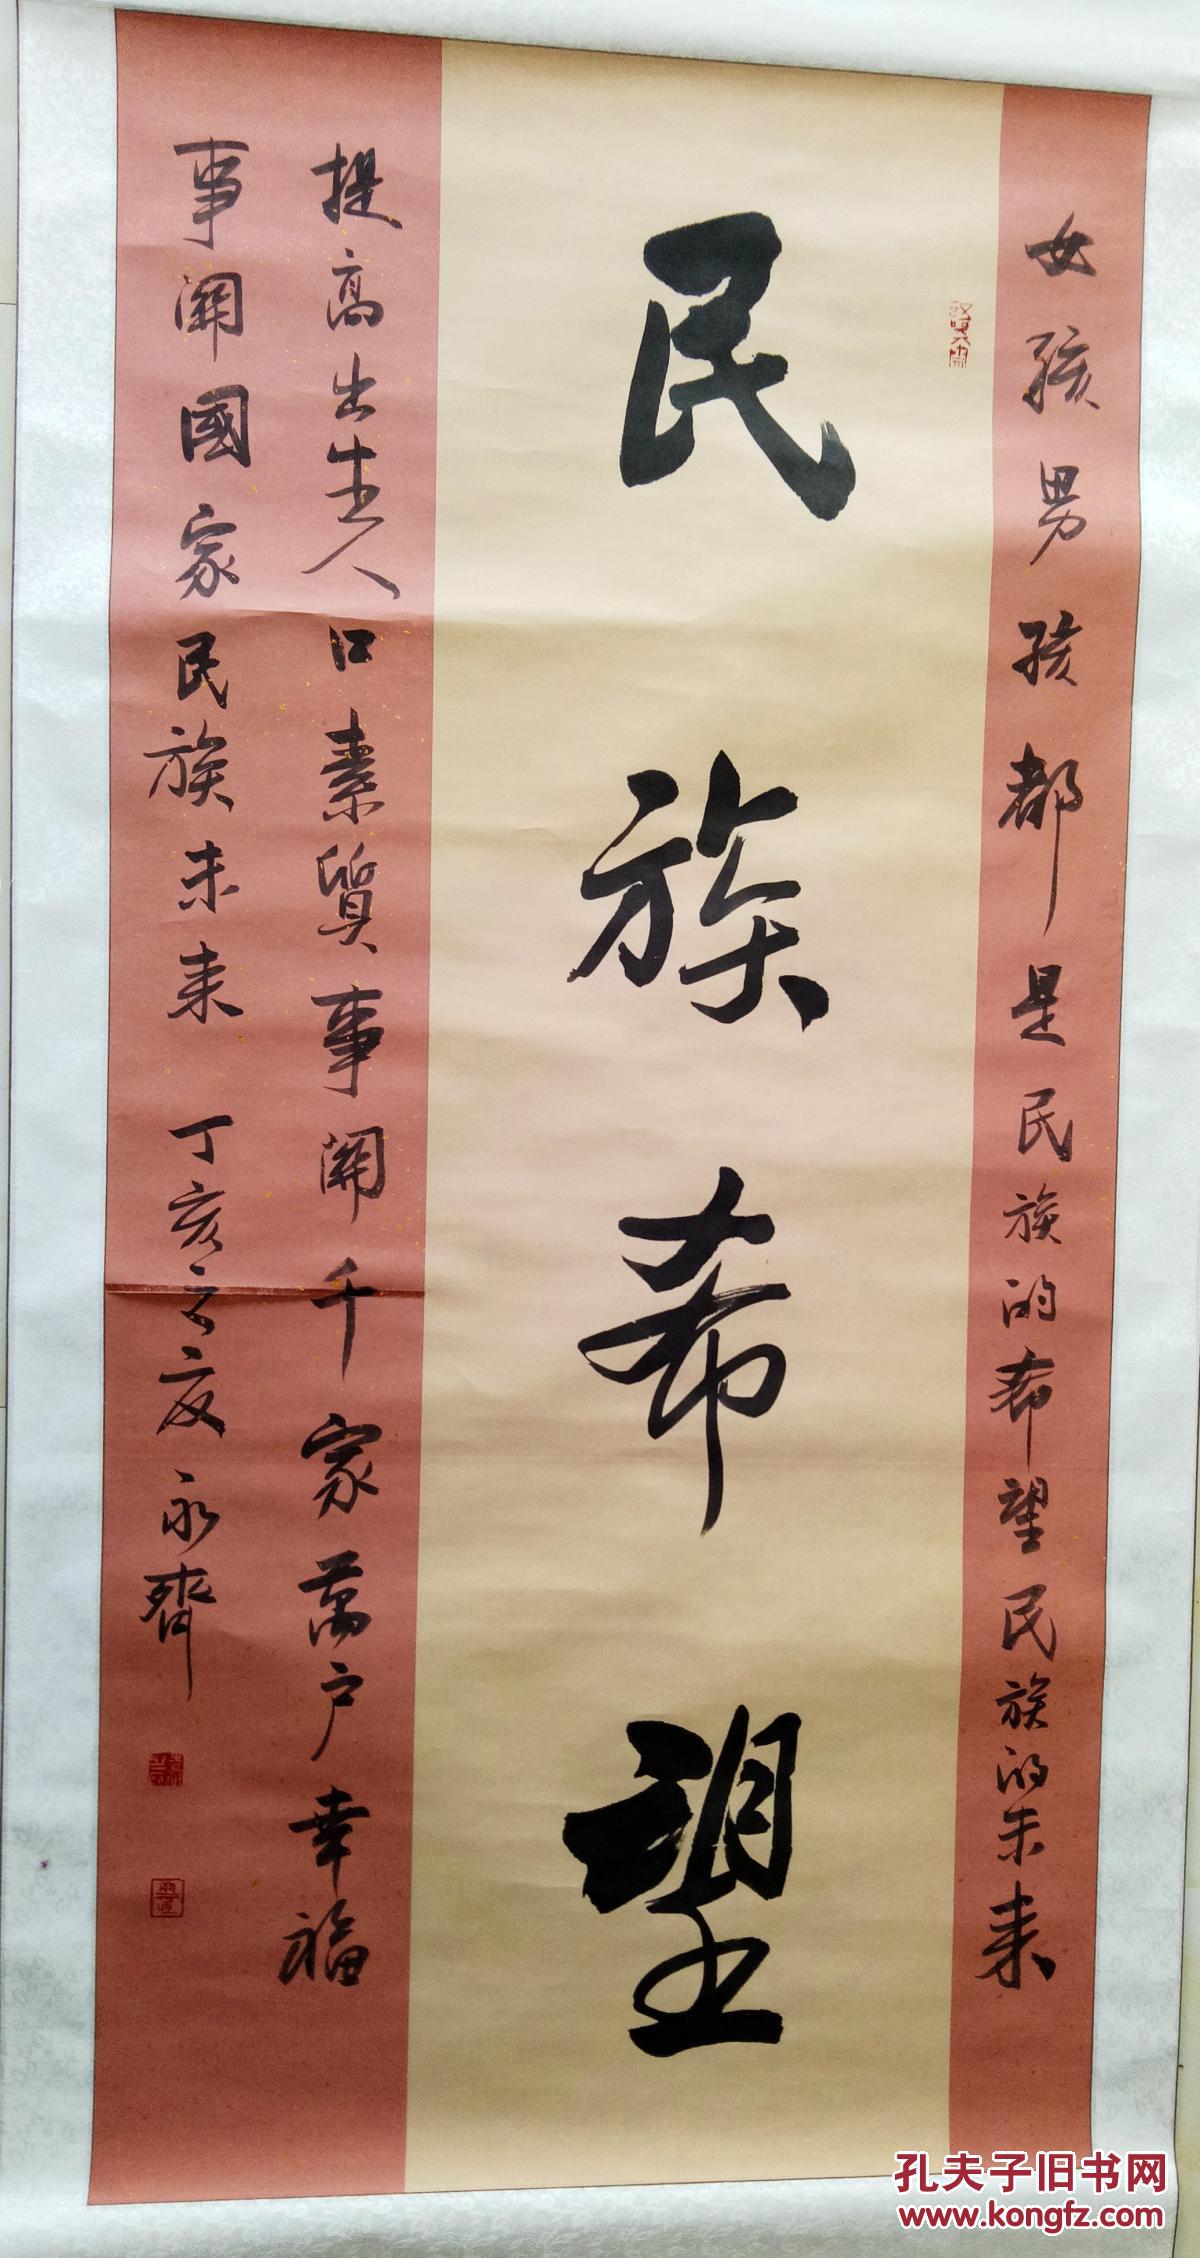 女孩男孩都是民族的希望民族的未来
民族希望
提高出生人口素質事関千家萬户幸福
事関國家民族未来 丁亥之夏永齊
孔夫子旧书网
www.kongfz.com